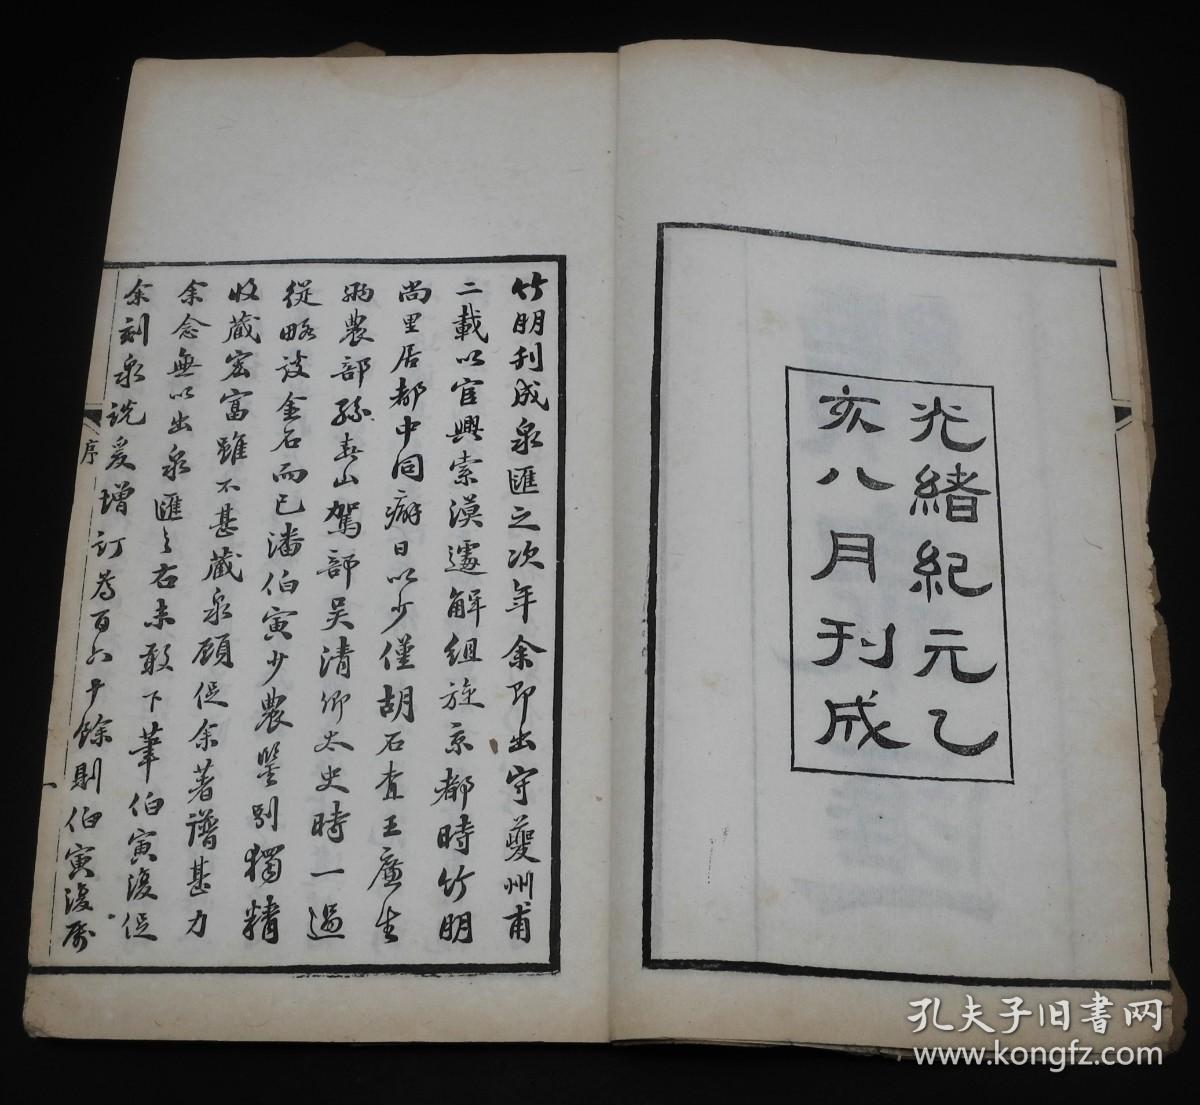 光緒紀元乙
亥八月刊成
竹朋刊成泉匯之次年余即出守夔州甫
二載以官興索漠遽解組旋京都時竹朋
尚里居都中同癖日以少僅胡石查王廉生
兩農部孫春山駕部吳清卿太史時一過
從略談金石而已潘伯寅少農鑒別獨精
收藏宏富雖不甚藏泉顧促余著譜甚力
余念無以出泉匯之右未敢下筆伯寅復促
余刻泉說爰增訂為百六十餘則伯寅復屬
序
一
孔夫子旧书网
www.kongfz.com